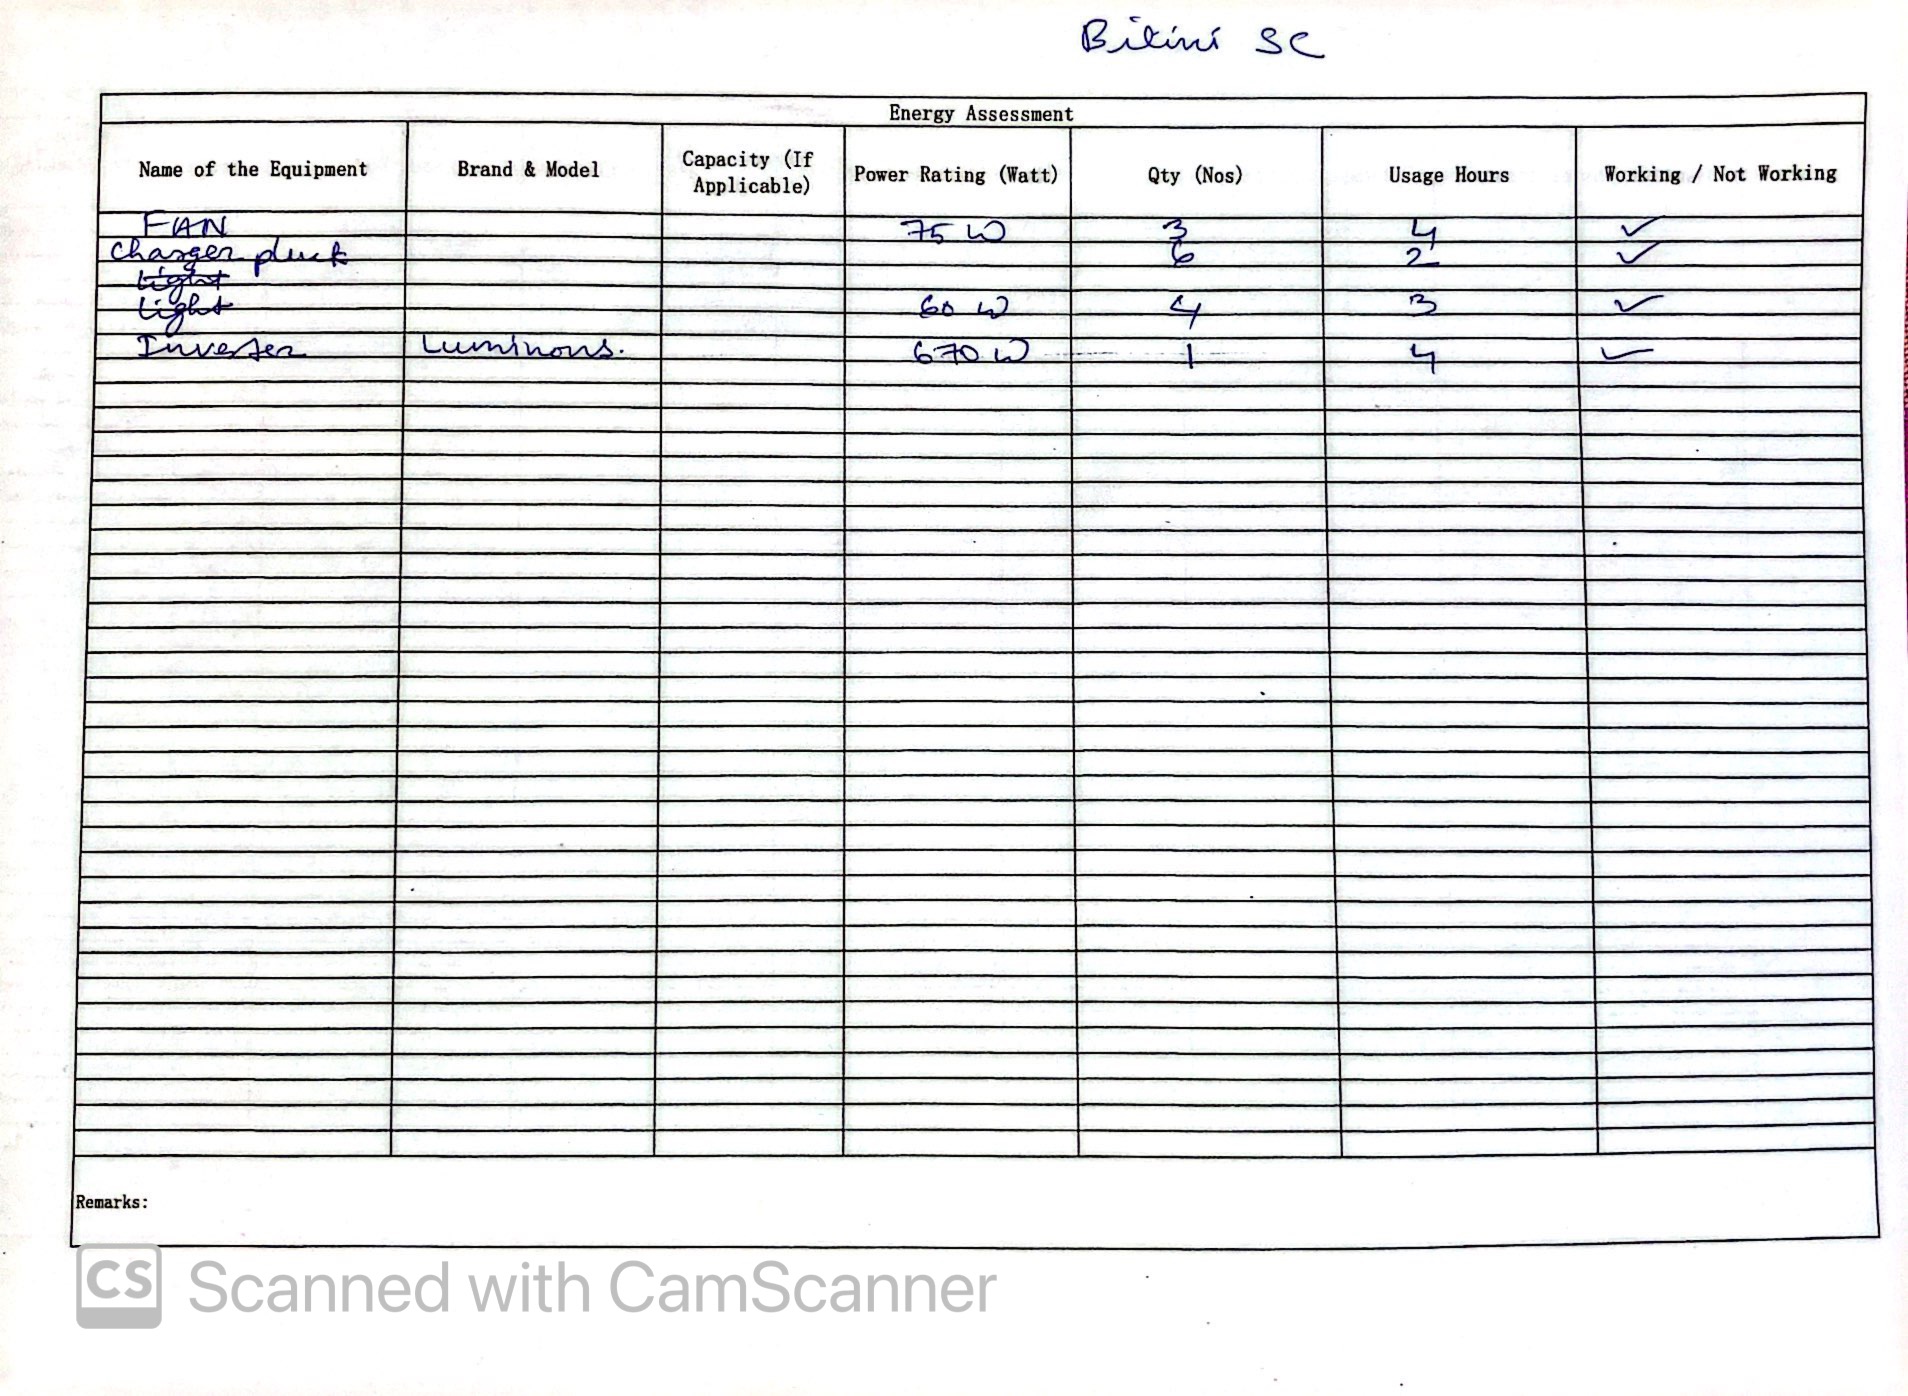 Bikini SC
Energy Assessment
Name of the Equipment Brand & Model Capacity (If Applicable) Power Rating (Watt) Qty (Nos) Usage Hours Working / Not Working
FAN 75 W 3 4 ✓
Charger pluck 6 2 ✓
Light
Light 60 W 4 3 ✓
Inverter Luminous. 670 W 1 4 ✓
Remarks:
CS Scanned with CamScanner